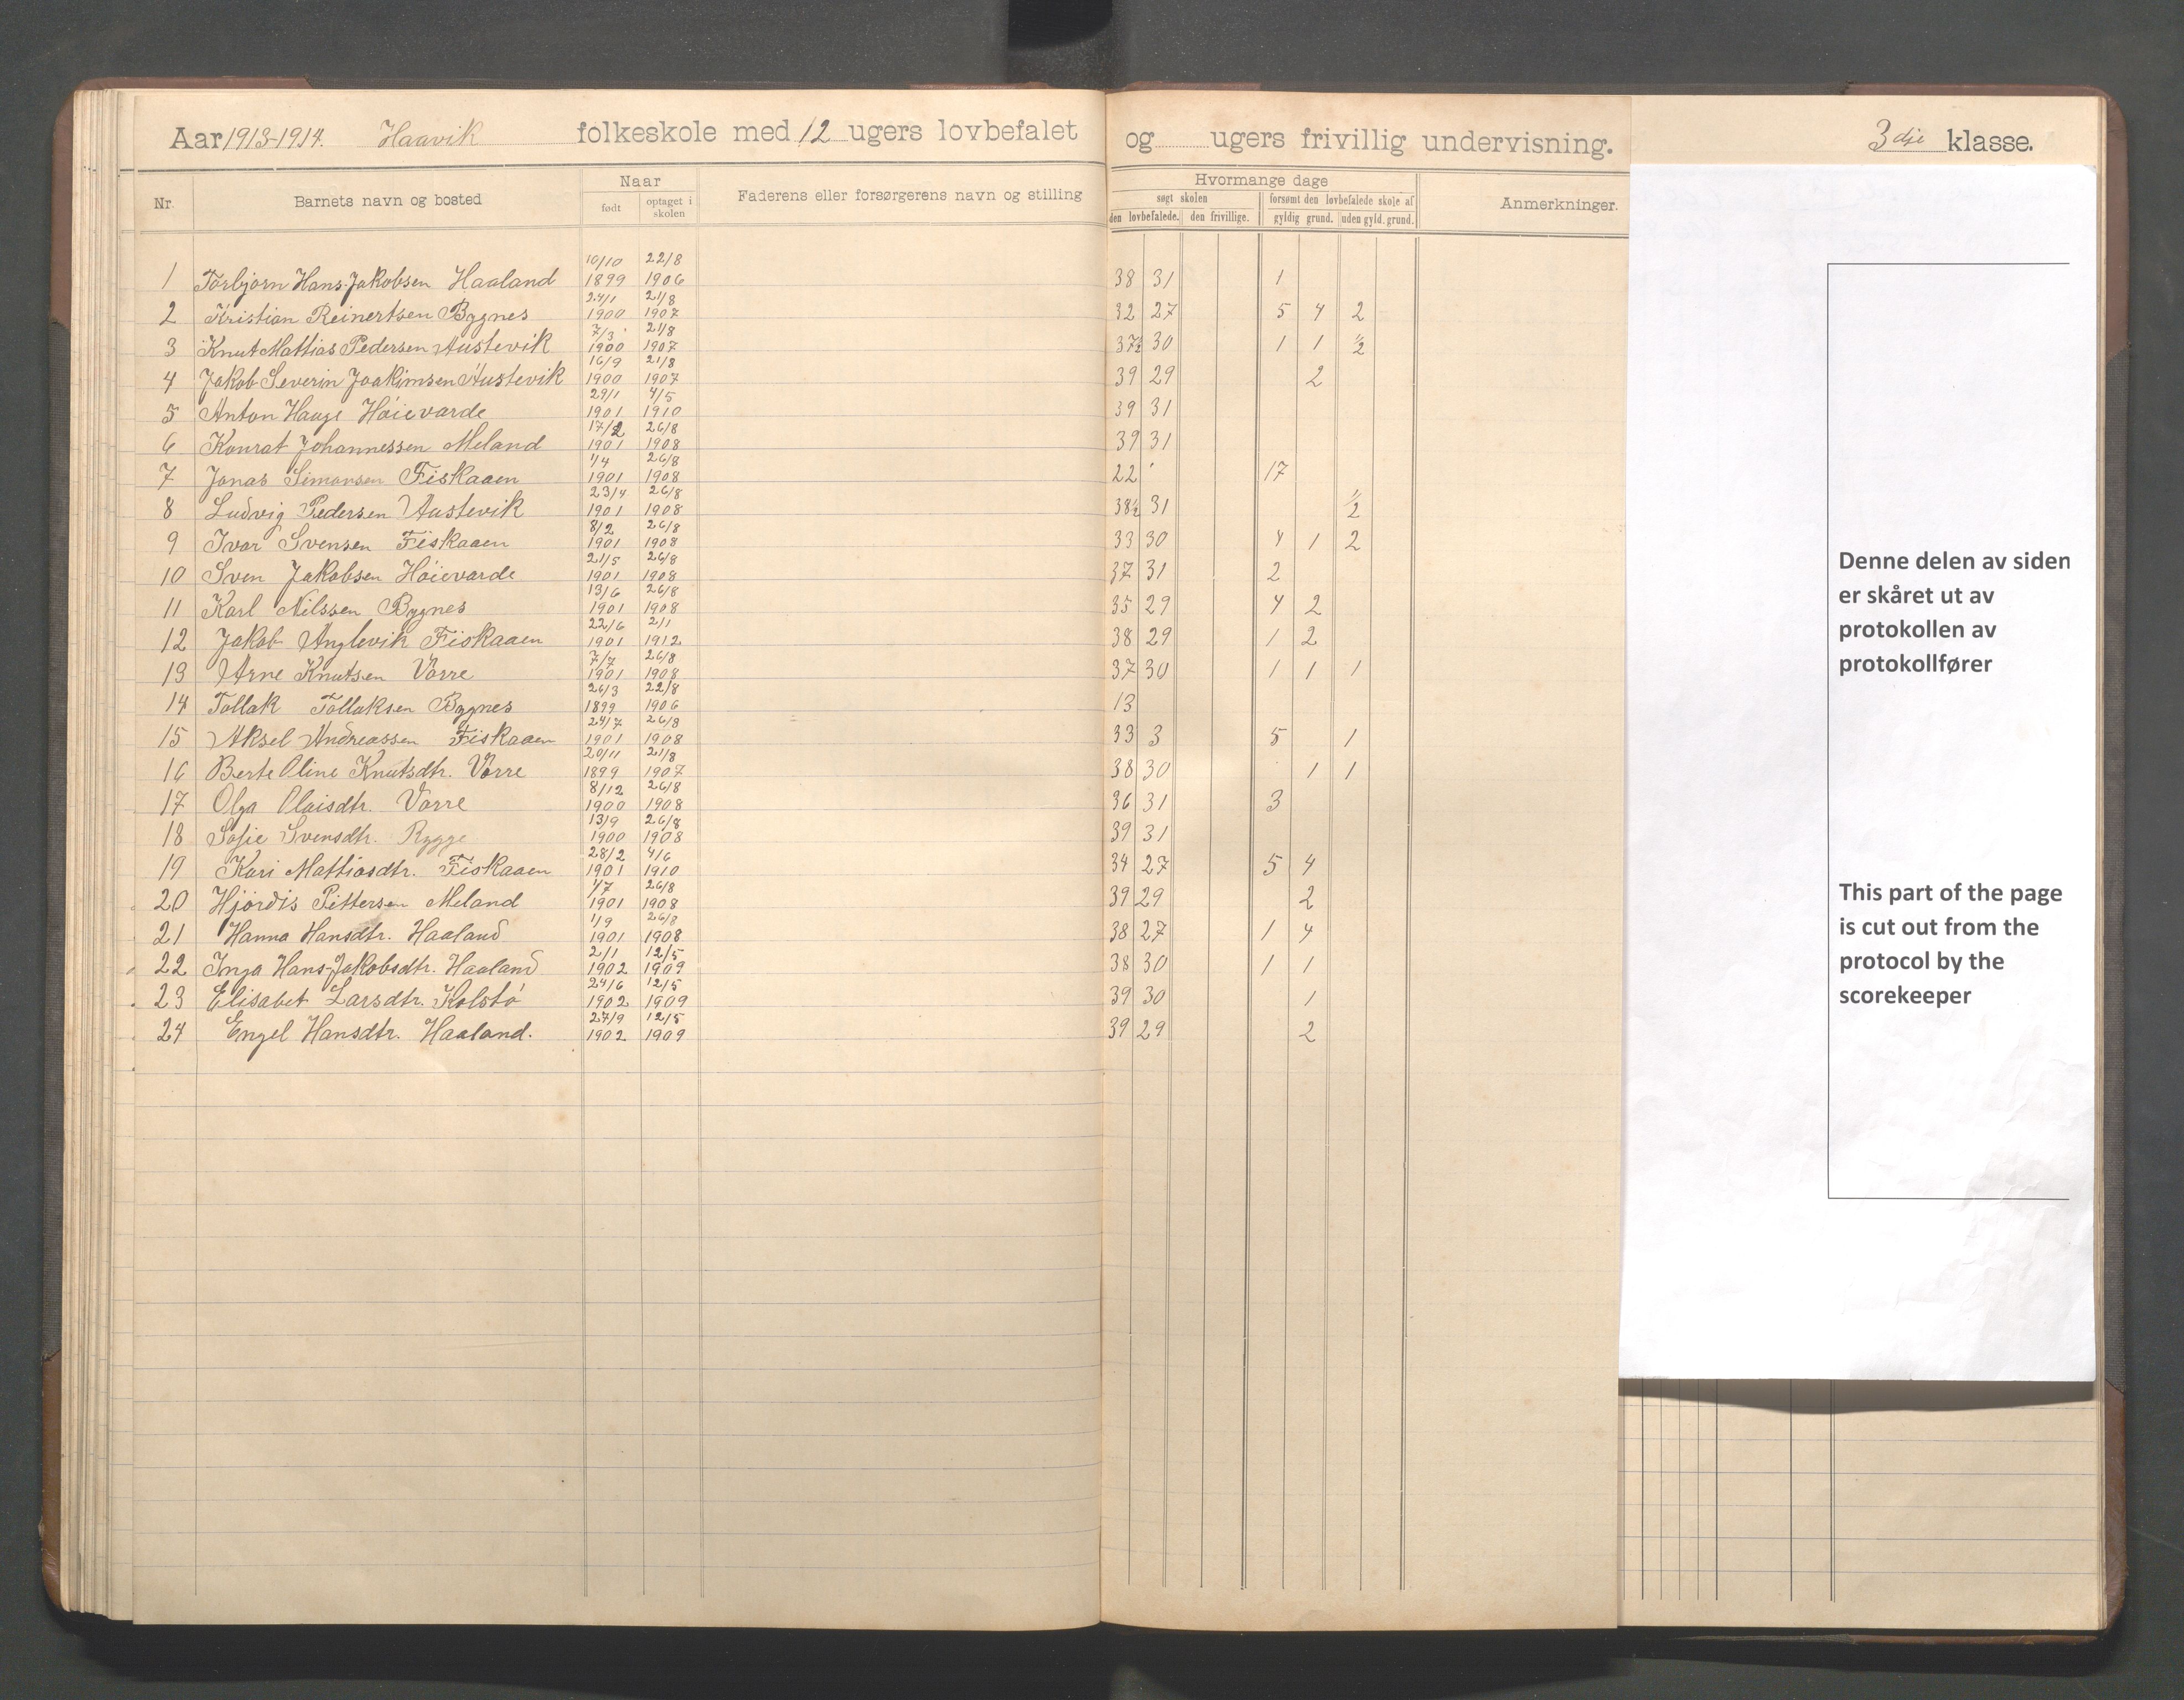 Aar 1913-1914. Haavik folkeskole med 12 ugers lovbefalet og ugers frivillig undervisning. 3dje klasse.
Nr. Barnets navn og bosted Naar Faderens eller forsørgerens navn og stilling Hvormange dage Anmerkninger.
født optaget i skolen søgt skolen forsømt den lovbefalede skole af
den lovbefalede. den frivillige. gyldig grund. uden gyld. grund.
1 Torbjørn Hans-Jakobsen Haaland 10/10 1899 22/8 1906 38 31 1
2 Kristian Reinertsen Bygnes 24/1 1900 21/8 1907 32 27 5 4 2
3 Knut Mattias Pedersen Austevik 7/3 1900 21/8 1907 37½ 30 1 1 ½
4 Jakob Severin Joakimsen Austevik 16/9 1900 21/8 1907 39 29 2
5 Anton Hauge Høievarde 29/1 1901 4/5 1910 39 31
6 Konrat Johannessen Meland 17/2 1901 26/8 1908 39 31
7 Jonas Simonsen Fiskaaen 1/4 1901 26/8 1908 22 17
8 Ludvig Pedersen Austevik 23/4 1901 26/8 1908 38½ 31 ½
9 Ivar Svensen Fiskaaen 8/2 1901 26/8 1908 33 30 4 1 2
10 Sven Jakobsen Høievarde 21/5 1901 26/8 1908 37 31 2
11 Karl Nilssen Bygnes 13/6 1901 26/8 1908 35 29 4 2
12 Jakob Anglevik Fiskaaen 22/6 1901 2/1 1912 38 29 1 2
13 Arne Knutsen Vorre 7/7 1901 26/8 1908 37 30 1 1 1
14 Tollak Tollaksen Bygnes 26/3 1899 22/8 1906 13
15 Aksel Andreassen Fiskaaen 24/7 1901 26/8 1908 33 3 5 1
16 Berte Oline Knutsdtr. Vorre 20/11 1899 21/8 1907 38 30 1 1
17 Olga Olaisdtr. Vorre 8/12 1900 26/8 1908 36 31 3
18 Sofie Svensdtr. Rygge 13/9 1900 26/8 1908 39 31
19 Kari Mattiasdtr. Fiskaaen 28/2 1901 4/6 1910 34 27 5 4
20 Hjørdis Pittersen Meland 1/7 1901 26/8 1908 39 29 2
21 Hanna Hansdtr. Haaland 1/9 1901 26/8 1908 38 27 1 4
22 Inga Hans-Jakobsdtr. Haaland 2/1 1902 12/5 1909 38 30 1 1
23 Elisabet Larsdtr. Kolstø 24/6 1902 12/5 1909 39 30 1
24 Engel Hansdtr. Haaland. 27/9 1902 12/5 1909 39 29 2
Denne delen av siden
er skåret ut av
protokollen av
protokollfører
This part of the page
is cut out from the
protocol by the
scorekeeper